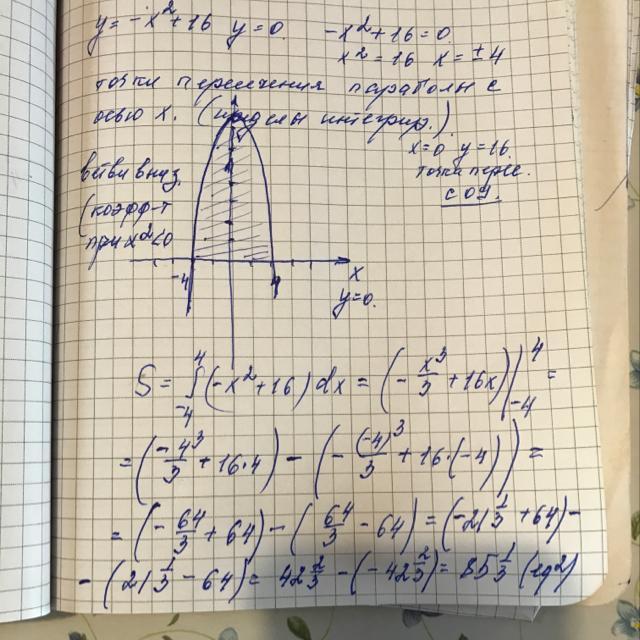 y = -x² + 16 y = 0. -x² + 16 = 0
x² = 16 x = ±4
точки пересечения параболы с
осью X. (пределы интегрир.)
x = 0 y = 16.
точка перес.
с OY.
ветви вниз,
(коэфф-т
при x² < 0
-4 4 X
y = 0.
S = ∫₋₄⁴ (-x² + 16) dx = (-x³/3 + 16x) |₋₄⁴ =
= (-4³/3 + 16·4) - (-(-4)³/3 + 16·(-4)) =
= (-64/3 + 64) - (64/3 - 64) = (-21 1/3 + 64) -
- (21 1/3 - 64) = 42 2/3 - (-42 2/3) = 85 1/3 (ед²)